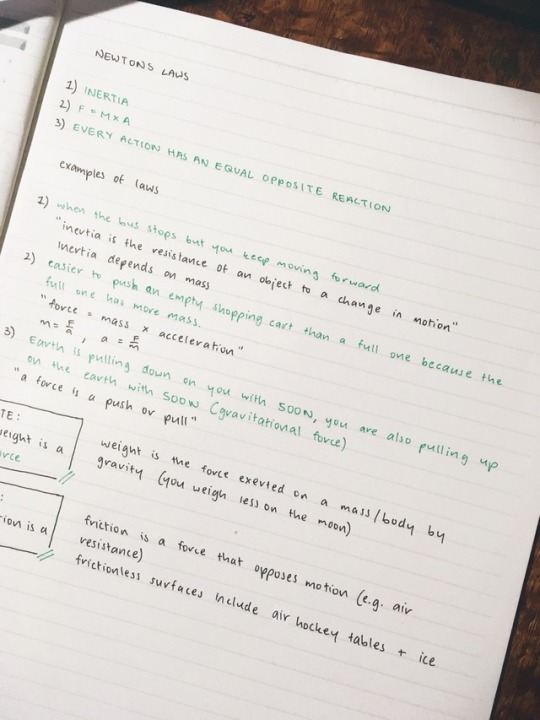 NEWTONS LAWS
1) INERTIA
2) F = M x A
3) EVERY ACTION HAS AN EQUAL OPPOSITE REACTION
examples of laws
1) when the bus stops but you keep moving forward
"inertia is the resistance of an object to a change in motion"
Inertia depends on mass
2) easier to push an empty shopping cart than a full one because the
full one has more mass.
"force = mass x acceleration"
m = F/a , a = F/m
3) Earth is pulling down on you with 500N, you are also pulling up
on the earth with 500N (gravitational force)
"a force is a push or pull"
TE:
weight is a
force
weight is the force exerted on a mass/body by
gravity (you weigh less on the moon)
:
tion is a
friction is a force that opposes motion (e.g. air
resistance)
frictionless surfaces include air hockey tables + ice